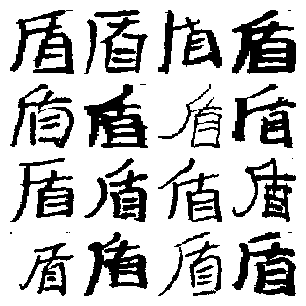 盾盾盾盾
盾盾盾盾
盾盾盾盾
盾盾盾盾